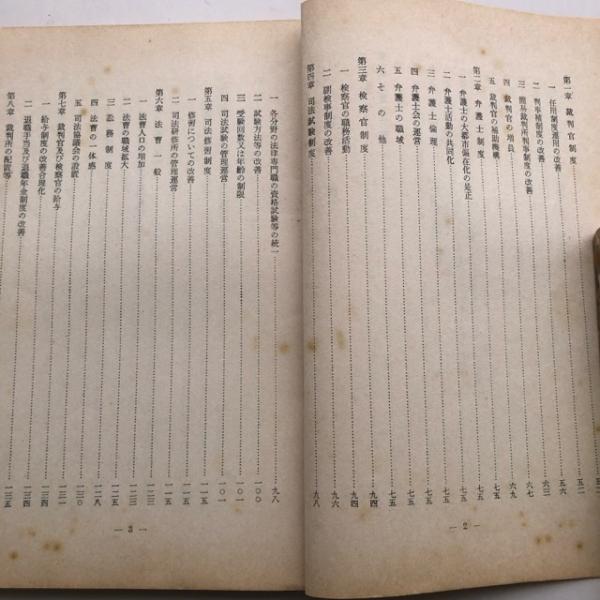 第一章 裁判官制度……五二
一 任用制度運用の改善……五六
二 判事補制度の改善……六三
三 簡易裁判所判事制度の改善……六七
四 裁判官の増員……六九
五 裁判官の補助機構……七五
第二章 弁護士制度……七五
一 弁護士の大都市偏在化の是正……七五
二 弁護士活動の共同化……七五
三 弁護士倫理……七五
四 弁護士会の運営……七五
五 弁護士の職域……七五
六 その他……九四
第三章 検察官制度……九四
一 検察官の職務活動……九四
二 副検事制度の改善……九六
第四章 司法試験制度……九八
— 2 —
一 各分野の法律専門職の資格試験等の統一……九八
二 試験方法等の改善……一〇〇
三 受験回数又は年齢の制限……一〇一
四 司法試験の管理運営……一〇一
第五章 司法修習制度……一一五
一 修習についての改善……一一五
二 司法研修所の管理運営……一一五
第六章 法曹一般……一一五
一 法曹人口の増加……一二三
二 法曹の職域拡大……一二三
三 訟務制度……一二五
四 法曹の一体感……一二八
五 司法協議会の設置……一三〇
第七章 裁判官及び検察官の給与……一三一
一 給与制度の改善合理化……一三四
二 退職手当及び退職年金制度の改善……一三四
第八章 裁判所の配置等……一三五
— 3 —